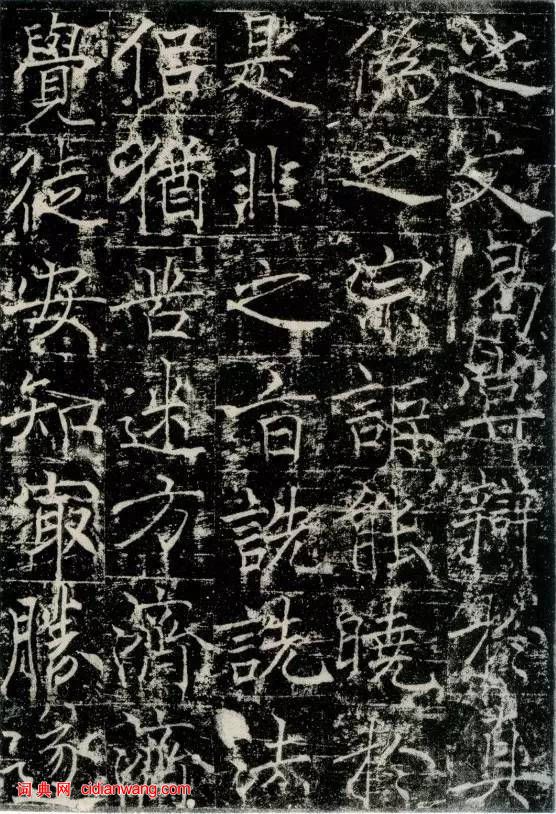 之文曷嘗辯於真
偽之宗詎能曉於
是非之旨詵詵法
侶猶昔迷方濟濟
覺徒安知㝡勝遂
词典网 cidianwang.com